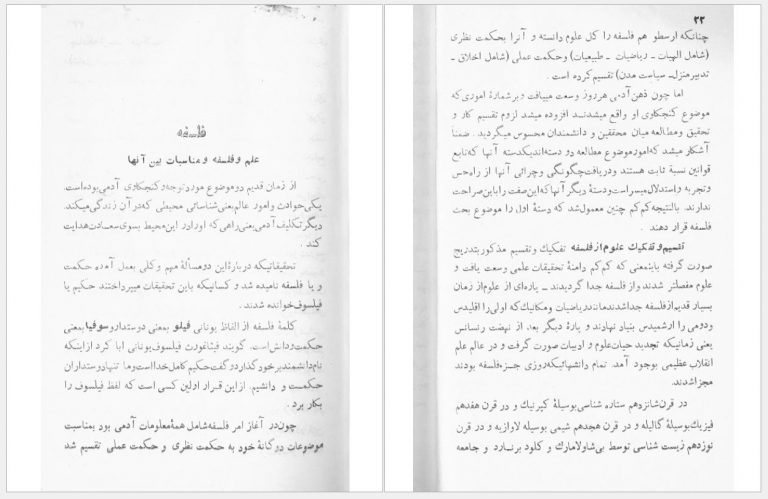 فلسفه
علم و فلسفه و مناسبات بین آنها
از زمان قدیم دو موضوع مورد توجه و کنجکاوی آدمی بوده است.
یکی حوادث و امور عالم یعنی شناسائی محیطی که در آن زندگی میکند.
دیگر تکلیف آدمی یعنی راهی که او را در این محیط بسوی سعادت هدایت
کند.
تحقیقاتیکه دربارهٔ این دو مسألهٔ مهم و کلی بعمل آمده حکمت
و یا فلسفه نامیده شد و کسانیکه باین تحقیقات میپرداختند حکیم یا
فیلسوف خوانده شدند.
کلمهٔ فلسفه از الفاظ یونانی فیلو بمعنی دوستدار و سوفیا بمعنی
حکمت و دانش است. گویند فیثاغورث فیلسوف یونانی ابا کرد از اینکه
نام دانشمند بر خود گذارد و گفت حکیم کامل خدا است و ما تنها دوستداران
حکمت و دانشیم. از این قرار اولین کسی است که لفظ فیلسوف را
بکار برد.
چون در آغاز امر فلسفه شامل همهٔ معلومات آدمی بود بمناسبت
موضوعات دو گانهٔ خود به حکمت نظری و حکمت عملی تقسیم شد
۲۲
چنانکه ارسطو هم فلسفه را کل علوم دانسته و آنرا بحکمت نظری
(شامل الهیات ـ ریاضیات ـ طبیعیات) و حکمت عملی (شامل اخلاق ـ
تدبیر منزل ـ سیاست مدن) تقسیم کرده است.
اما چون ذهن آدمی هر روز وسعت مییافت و بر شمارهٔ اموری که
موضوع کنجکاوی او واقع میشدند افزوده میشد لزوم تقسیم کار و
تحقیق و مطالعه میان محققین و دانشمندان محسوس میگردید. ضمناً
آشکار میشد که امور موضوع مطالعه دو دسته‌اند یکدسته آنها که تابع
قوانین نسبة ثابت هستند و دریافت چگونگی و چرائی آنها از راه حس
و تجربه و استدلال میسر است و دستهٔ دیگر آنها که این صفت را باین صراحت
ندارند. بالنتیجه کم کم چنین معمول شد که دستهٔ اول را موضوع بحث
فلسفه قرار دهند.
تقسیم و تفکیک علوم از فلسفه تفکیک و تقسیم مذکور بتدریج
صورت گرفته باینمعنی که کم کم دامنهٔ تحقیقات علمی وسعت یافت و
علوم مفصلتر شدند و از فلسفه جدا گردیدند ـ پاره‌ای از علوم از زمان
بسیار قدیم از فلسفه جدا شدند مانند ریاضیات و مکانیک که اولی را اقلیدس
و دومی را ارشمیدس بنیاد نهادند و پارهٔ دیگر بعد از نهضت رنسانس
یعنی زمانیکه تجدید حیات علوم و ادبیات صورت گرفت و در عالم علم
انقلاب عظیمی بوجود آمد. تمام دانشهائیکه روزی جزء فلسفه بودند
مجزا شدند.
در قرن شانزدهم ستاره شناسی بوسیلهٔ کپرنیک و در قرن هفدهم
فیزیک بوسیلهٔ گالیله و در قرن هجدهم شیمی بوسیله لاوازیه و در قرن
نوزدهم زیست شناسی توسط بی‌شا و لامارک و کلود برنارد و جامعه